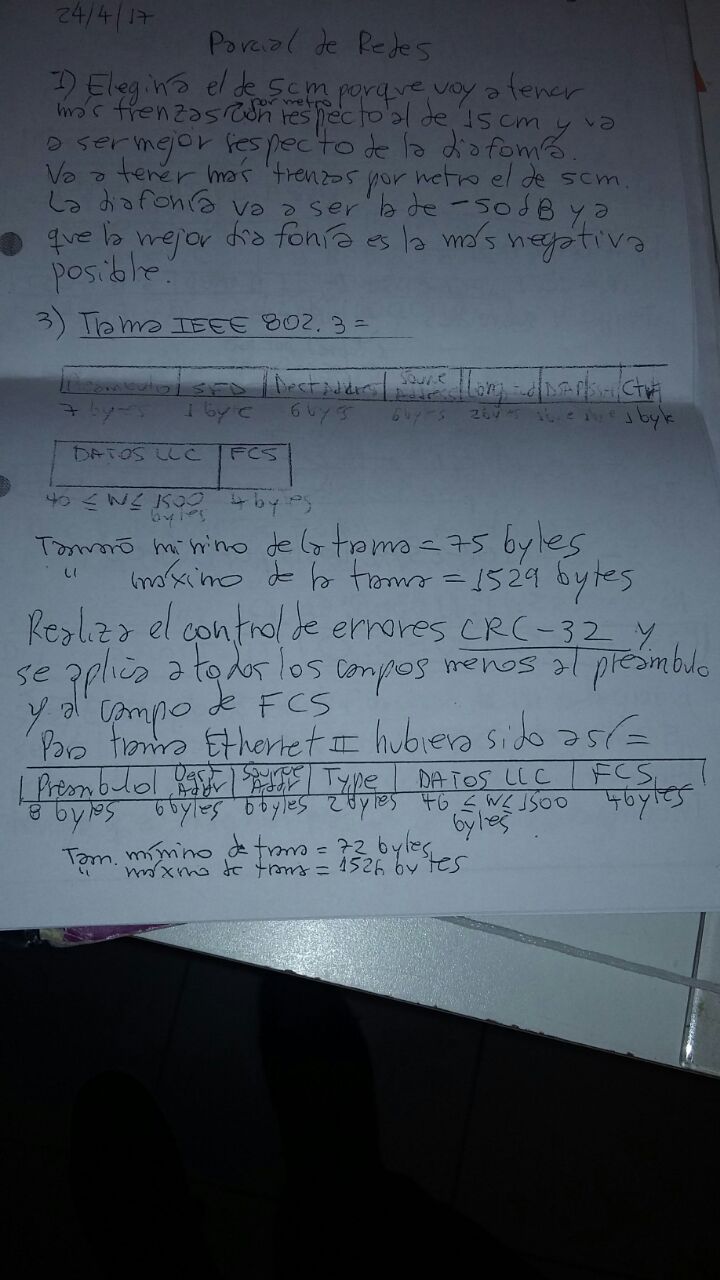 24/4/17
Parcial de Redes
1) Eligiría el de 5cm porque voy a tener
por metro
más trenzas con respecto al de 15cm y va
a ser mejor respecto de la diafonía.
Va a tener más trenzas por metro el de 5cm.
La diafonía va a ser la de -50dB ya
que la mejor diafonía es la más negativa
posible.
3) Trama IEEE 802.3 =
Preámbulo | SFD | Dest Address | Source Address | Longitud | DSAP | | Ctrl
7 bytes 1 byte 6 bytes 6 bytes 2 bytes 1 byte
DATOS LLC | FCS
≤ N ≤ 1500 bytes 4 bytes
Tamaño mínimo de la trama = 75 bytes
" máximo de la trama = 1529 bytes
Realiza el control de errores CRC-32 y
se aplica a todos los campos menos al preámbulo
y al campo de FCS
Para trama Ethernet II hubiera sido así =
Preámbulo | Dest Addr | Source Addr | Type | DATOS LLC | FCS
8 bytes 6 bytes 6 bytes 2 bytes 46 ≤ N ≤ 1500 bytes 4 bytes
Tam. mínimo de trama = 72 bytes
" máximo de trama = 1526 bytes